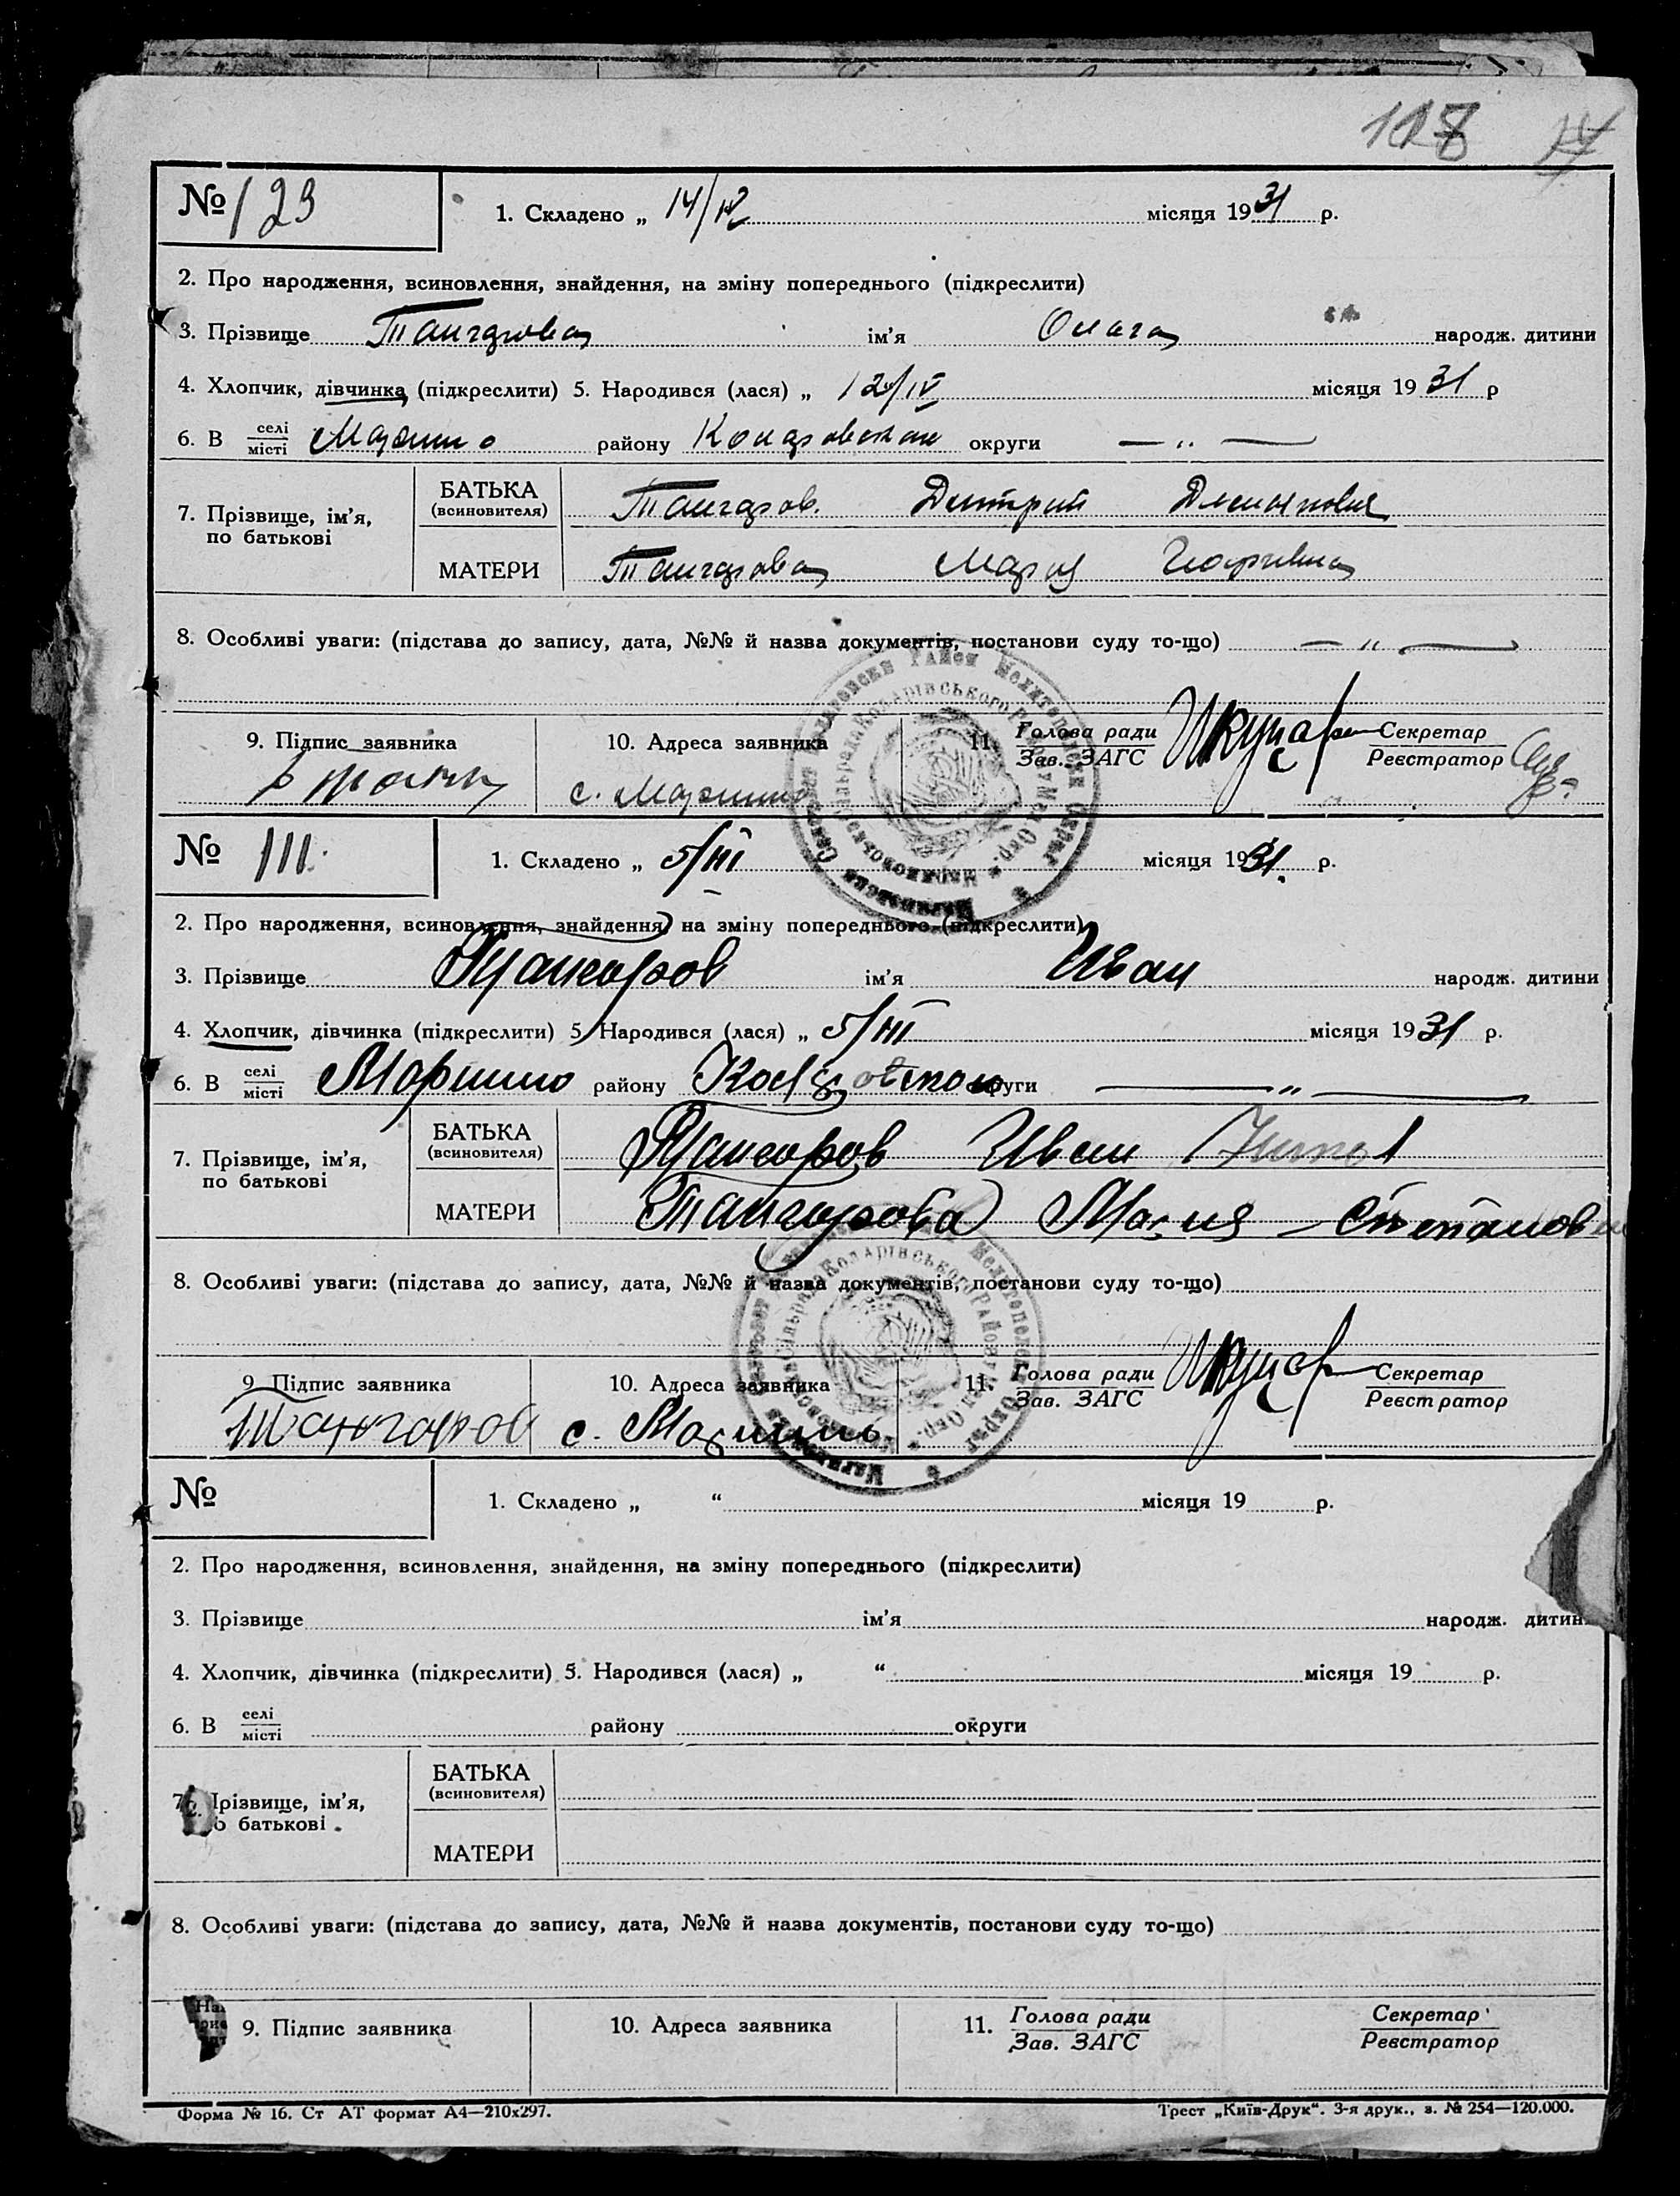 № 123
1. Складено „ 14/IV місяця 1931 р.
2. Про народження, всиновлення, знайдення, на зміну попереднього (підкреслити)
3. Прізвище Тангарова ім'я народж. дитини
4. Хлопчик, дівчинка (підкреслити) 5. Народився (лася) „ 12/IV місяця 1931 р
6. В селі місті району округи — „ —
7. Прізвище, ім'я, по батькові
БАТЬКА (всиновителя) Тангаров. Дмитрий
МАТЕРИ Тангарова
8. Особливі уваги: (підстава до запису, дата, №№ й назва документів, постанови суду то-що) — „ —
9. Підпис заявника 10. Адреса заявника 11. Голова ради Зав. ЗАГС Секретар Реєстратор
с.
№ 111.
1. Складено „ 5/III місяця 1931. р.
2. Про народження, всиновлення, знайдення, на зміну попереднього (підкреслити)
3. Прізвище Тангаров ім'я Иван народж. дитини
4. Хлопчик, дівчинка (підкреслити) 5. Народився (лася) „ 5/III місяця 1931 р.
6. В селі місті району округи — „ —
7. Прізвище, ім'я, по батькові
БАТЬКА (всиновителя) Тангаров Иван
МАТЕРИ Тангарова Мария Степановн
8. Особливі уваги: (підстава до запису, дата, №№ й назва документів, постанови суду то-що)
9. Підпис заявника 10. Адреса заявника 11. Голова ради Зав. ЗАГС Секретар Реєстратор
Тангаров с.
№
1. Складено „ “ місяця 19 р.
2. Про народження, всиновлення, знайдення, на зміну попереднього (підкреслити)
3. Прізвище ім'я народж. дитин
4. Хлопчик, дівчинка (підкреслити) 5. Народився (лася) „ “ місяця 19 р.
6. В селі місті району округи
7. Прізвище, ім'я, по батькові
БАТЬКА (всиновителя)
МАТЕРИ
8. Особливі уваги: (підстава до запису, дата, №№ й назва документів, постанови суду то-що)
9. Підпис заявника 10. Адреса заявника 11. Голова ради Зав. ЗАГС Секретар Реєстратор
Форма № 16. Ст АТ формат А4—210х297. Трест „Київ-Друк“. 3-я друк., з. № 254—120.000.